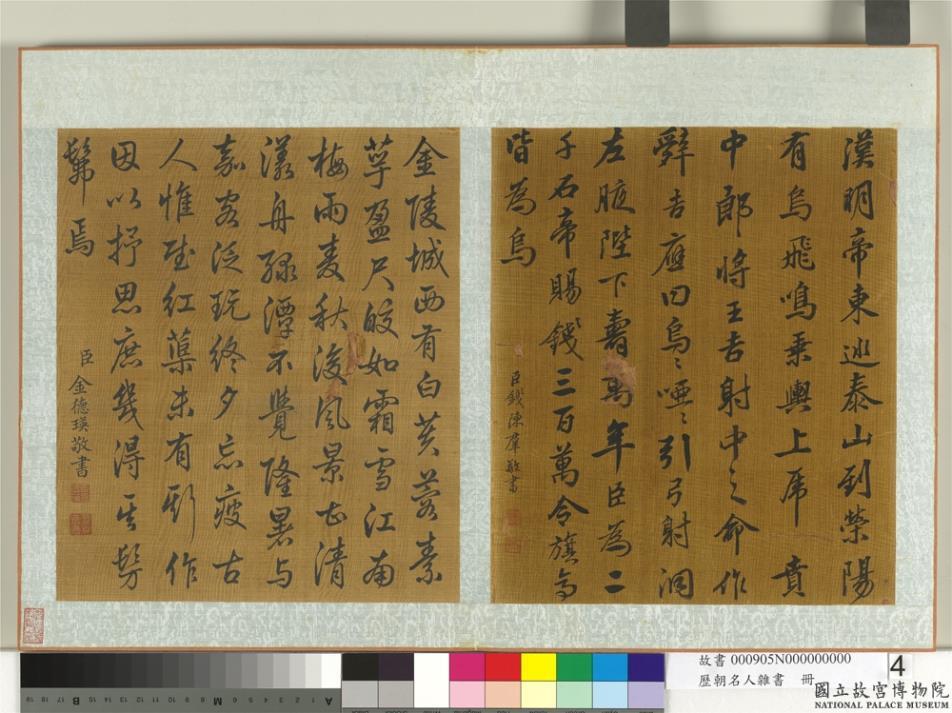 漢明帝東巡泰山到滎陽
有烏飛鳴乘輿上虎賁
中郎將王吉射中之命作
辭吉應曰烏〻啞〻引弓射洞
左腋陛下壽萬年臣為二
千石帝賜錢三百萬令旗亭
皆為烏
臣錢陳羣敬書
金陵城西有白芙蓉素
萼盈尺皎如霜雪江南
梅雨麦秋後風景甚清
漾舟綠潭不覺隆暑与
嘉客泛玩終夕忘疲古
人惟賦紅蕖未有斯作
因以抒思庶幾得其髣
髴焉
臣金德瑛敬書
故書 000905N000000000
歷朝名人雜書 冊
4
國立故宮博物院
NATIONAL PALACE MUSEUM